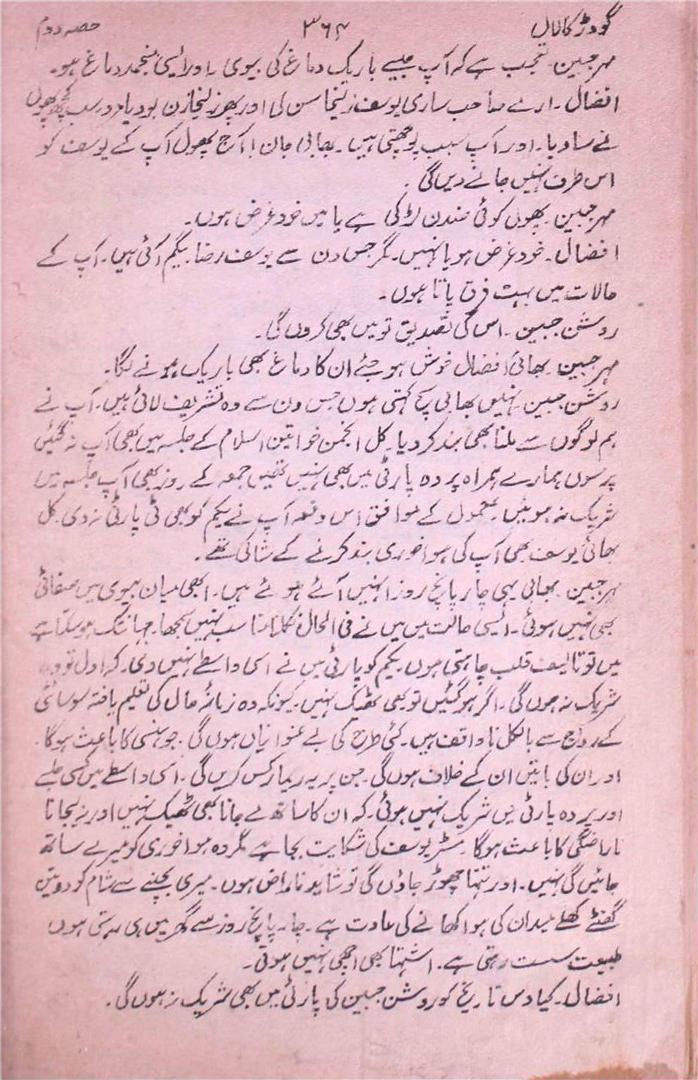 گودڑ کا لال ۳۶۴ حصہ دوم
مہر جبین۔ تعجب ہے کہ آپ جیسے باریک دماغ کی بیوی۔ اور ایسی منجمد دماغ ہو۔
افضال۔ ارے صاحب ساری یوسف زلیخا سن لی اور پھر زلیخا زن بود یا مرد سب کچھ پھول
نے سنا دیا۔ اور آپ سبب پوچھتی ہیں۔ بھابی جان! آج پھول آپ کے یوسف کو
اس طرف نہیں جانے دیں گی۔
مہر جبین۔ پھول کوئی ضدن لڑکی ہے یا میں خود غرض ہوں۔
افضال۔ خود غرض ہو یا نہیں۔ مگر جس دن سے یوسف رضا بیگم آئی ہیں۔ آپ کے
حالات میں بہت فرق پاتا ہوں۔
روشن جبین۔ اس کی تصدیق تو میں بھی کروں گی۔
مہر جبین۔ بھائی افضال خوش ہو جئے ان کا دماغ بھی باریک ہونے لگا۔
روشن جبین۔ نہیں بھابی سچ کہتی ہوں جس دن سے وہ تشریف لائی ہیں۔ آپ نے
ہم لوگوں سے ملنا بھی بند کر دیا۔ کل انجمن خواتین اسلام کے جلسہ میں بھی آپ نہ گئیں
پرسوں ہمارے ہمراہ پردہ پارٹی میں بھی نہیں تھیں جمعہ کے روز بھی آپ جلسہ میں
شریک نہ ہوئیں۔ معمول کے موافق اس دفعہ آپ نے یکم کو بھی ٹی پارٹی نہ دی۔ کل
بھائی یوسف بھی آپ کی ہوا خوری بند کرنے کے شاکی تھے۔
مہر جبین۔ بھابی یہی چار پانچ روز انہیں آئے ہوئے ہیں۔ ابھی میاں بیوی میں صفائی
بھی نہیں ہوئی۔ ایسی حالت میں میں نے فی الحال نکلنا مناسب نہیں سمجھا۔ جہانتک ہو سکتا ہے
میں تو تالیف قلب چاہتی ہوں۔ یکم کو پارٹی میں نے اسی واسطے نہیں دی۔ کہ اول تو وہ
شریک نہ ہوں گی۔ اگر ہو گئیں تو بھی ٹھیک نہیں۔ کیونکہ وہ زمانہ حال کی تعلیم یافتہ سوسائٹی
کے رواج سے بالکل ناواقف ہیں۔ کئی طرح کی بے عنوانیاں ہوں گی۔ جو ہنسی کا باعث ہوگا۔
اور ان کی باتیں ان کے خلاف ہوں گی۔ جن پر یہ ریمارکس کریں گی۔ اسی واسطے میں کسی جلسے
اور پردہ پارٹی میں شریک نہیں ہوئی۔ کہ ان کا ساتھ لے جانا بھی ٹھیک نہیں اور نہ لیجانا
ناراضگی کا باعث ہوگا۔ مسٹر یوسف کی شکایت بجا ہے مگر وہ ہوا خوری کو میرے ساتھ
جائیں گی نہیں۔ اور تنہا چھوڑ جاؤں گی تو شاید ناراض ہوں۔ میری بچپنے سے شام کو دو تین
گھنٹے کھلے میدان کی ہوا کھانے کی عادت ہے۔ چار پانچ روز سے گھر میں ہی رہتی ہوں
طبیعت سست رہتی ہے۔ اشتہا بھی اچھی نہیں ہوتی۔
افضال۔ کیا دس تاریخ کو روشن جبین کی پارٹی میں بھی شریک نہ ہوں گی۔